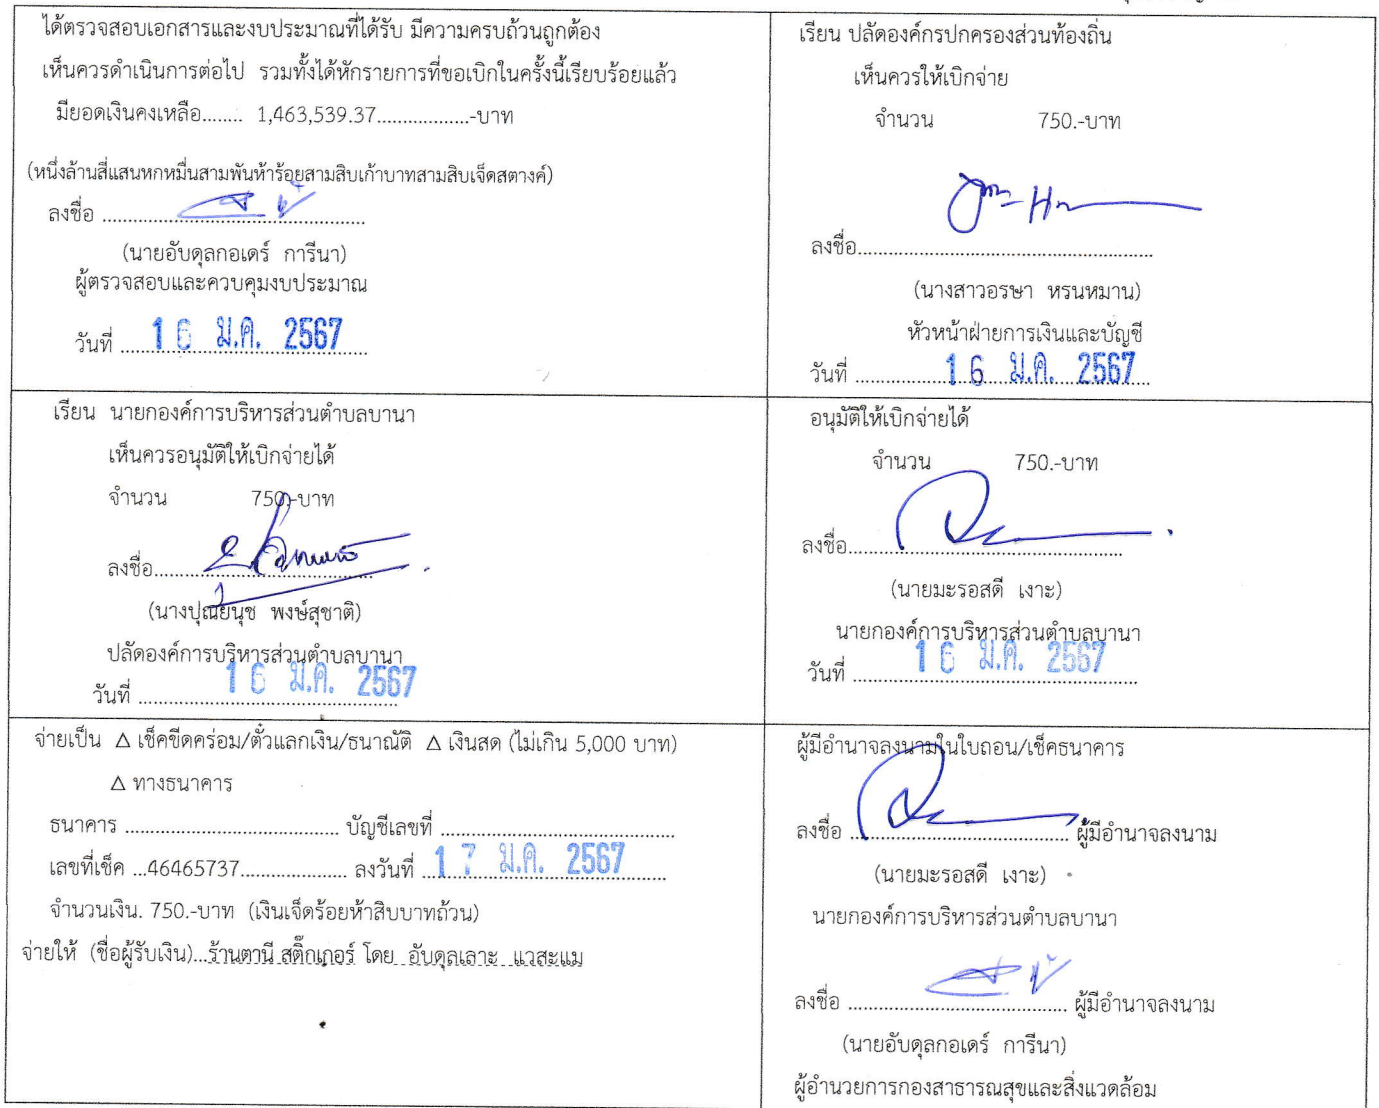 ได้ตรวจสอบเอกสารและงบประมาณที่ได้รับ มีความครบถ้วนถูกต้อง
เห็นควรดำเนินการต่อไป รวมทั้งได้หักรายการที่ขอเบิกในครั้งนี้เรียบร้อยแล้ว
มียอดเงินคงเหลือ........ 1,463,539.37..................-บาท
(หนึ่งล้านสี่แสนหกหมื่นสามพันห้าร้อยสามสิบเก้าบาทสามสิบเจ็ดสตางค์)
ลงชื่อ ........................................
(นายอับดุลกอเดร์ การีนา)
ผู้ตรวจสอบและควบคุมงบประมาณ
วันที่ 16 ม.ค. 2567
เรียน ปลัดองค์กรปกครองส่วนท้องถิ่น
เห็นควรให้เบิกจ่าย
จำนวน 750.-บาท
ลงชื่อ.............................................
(นางสาวอรษา หรนหมาน)
หัวหน้าฝ่ายการเงินและบัญชี
วันที่ 16 ม.ค. 2567
เรียน นายกองค์การบริหารส่วนตำบลบานา
เห็นควรอนุมัติให้เบิกจ่ายได้
จำนวน 750.-บาท
ลงชื่อ..................................
(นางปุณยนุช พงษ์สุชาติ)
ปลัดองค์การบริหารส่วนตำบลบานา
วันที่ 16 ม.ค. 2567
อนุมัติให้เบิกจ่ายได้
จำนวน 750.-บาท
ลงชื่อ..........................................
(นายมะรอสดี เงาะ)
นายกองค์การบริหารส่วนตำบลบานา
วันที่ 16 ม.ค. 2567
จ่ายเป็น Δ เช็คขีดคร่อม/ตั๋วแลกเงิน/ธนาณัติ Δ เงินสด (ไม่เกิน 5,000 บาท)
Δ ทางธนาคาร
ธนาคาร .................................. บัญชีเลขที่ .....................................
เลขที่เช็ค ...46465737................. ลงวันที่ 17 ม.ค. 2567
จำนวนเงิน. 750.-บาท (เงินเจ็ดร้อยห้าสิบบาทถ้วน)
จ่ายให้ (ชื่อผู้รับเงิน)...ร้านตานี สติ๊กเกอร์ โดย อับดุลเลาะ แวสะแม
ผู้มีอำนาจลงนามในใบถอน/เช็คธนาคาร
ลงชื่อ ................................... ผู้มีอำนาจลงนาม
(นายมะรอสดี เงาะ)
นายกองค์การบริหารส่วนตำบลบานา
ลงชื่อ ................................... ผู้มีอำนาจลงนาม
(นายอับดุลกอเดร์ การีนา)
ผู้อำนวยการกองสาธารณสุขและสิ่งแวดล้อม